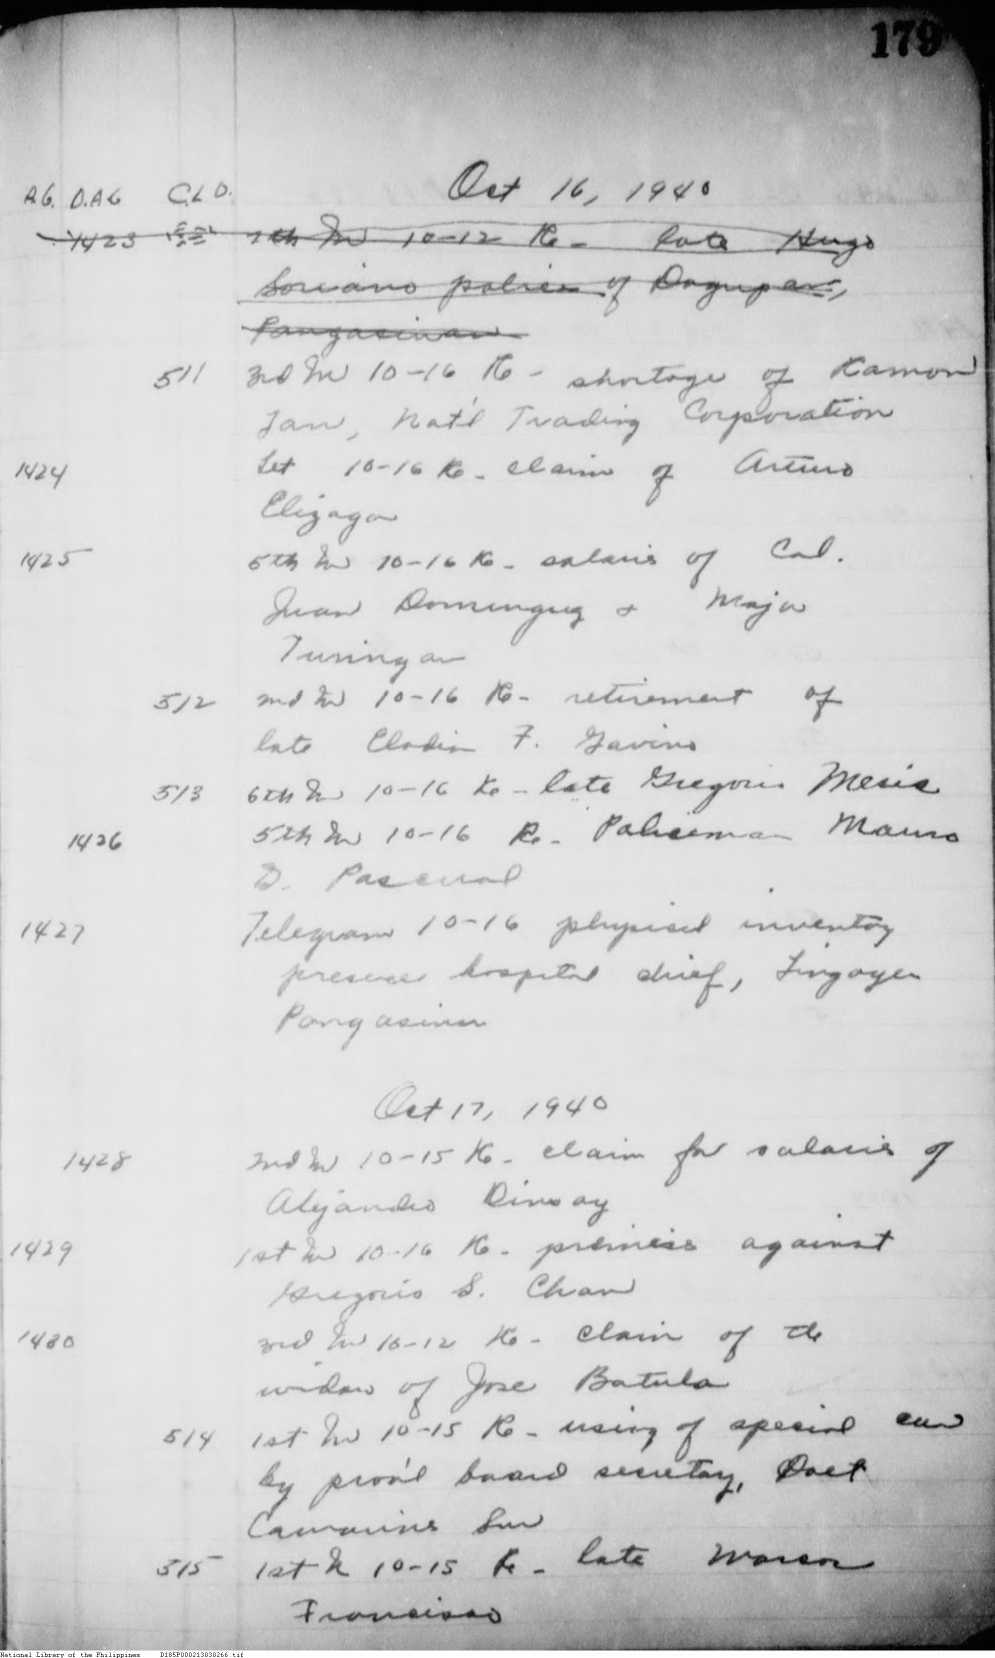 179
Oct 16, 1940
A.G. O.A.G C.L.D.
1423 7th In 10-12 Re- late Hugo
Soriano police of Dagupan,
Pangasinan
511 3rd In 10-16 Re- shortage of Ramon
Tan, Nat'l Trading Corporation
1424 Let 10-16 Re- claim of Arturo
Elizaga
1425 5th In 10-16 Re- salaries of Col.
Juan Dominguez & Major
Turingan
512 2nd In 10-16 Re- retirement of
late Eladio F. Gavino
513 6th In 10-16 Re- late Gregorio
1426 5th In 10-16 Re- Policeman Mauro
D. Pascual
1427 Telegram 10-16 physical inventory
presence hospital chief, Lingayen
Pangasinan
Oct 17, 1940
1428 2nd In 10-15 Re- claim for salaries of
Alejandro Dinsay
1429 1st In 10-16 Re- against
Gregorio S. Chan
1430 3rd In 10-12 Re- claim of the
widow of Jose Batula
514 1st In 10-15 Re- using of special
by prov'l board secretary,
Camarines Sur
515 1st In 10-15 Re- late
Francisco
National Library of the Philippines D185P000213030266.tif